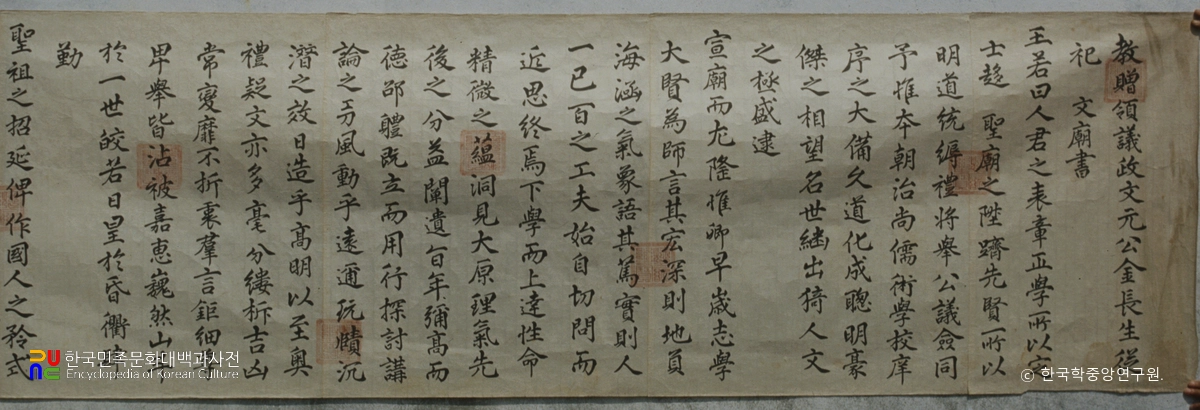 教贈領議政文元公金長生從
祀 文廟書
王若曰人君之表章正學所以定
士趍 聖廟之陞躋先賢所以
明道統縟禮將擧公議僉同
予惟本朝治尚儒術學校庠
序之大備久道化成聰明豪
傑之相望名世繼出猗人文
之極盛逮
宣廟而尤隆惟卿早歲志學
大賢為師言其宏深則地負
海涵之氣象語其篤實則人
一己百之工夫始自切問而
近思終焉下學而上達性命
精微之蘊洞見大原理氣先
後之分益闡遺旨年彌高而
德邵體既立而用行探討講
論之方風動乎遠邇玩賾沉
潛之效日造乎高明以至奥
禮疑文亦多毫分縷析吉凶
常變靡不折衷羣言鉅細
畢擧皆沾被嘉惠巍然山
於一世皎若日星於昏衢
勤
聖祖之招延俾作國人之矜式
한국민족문화대백과사전
Encyclopedia of Korean Culture
ⓒ 한국학중앙연구원.